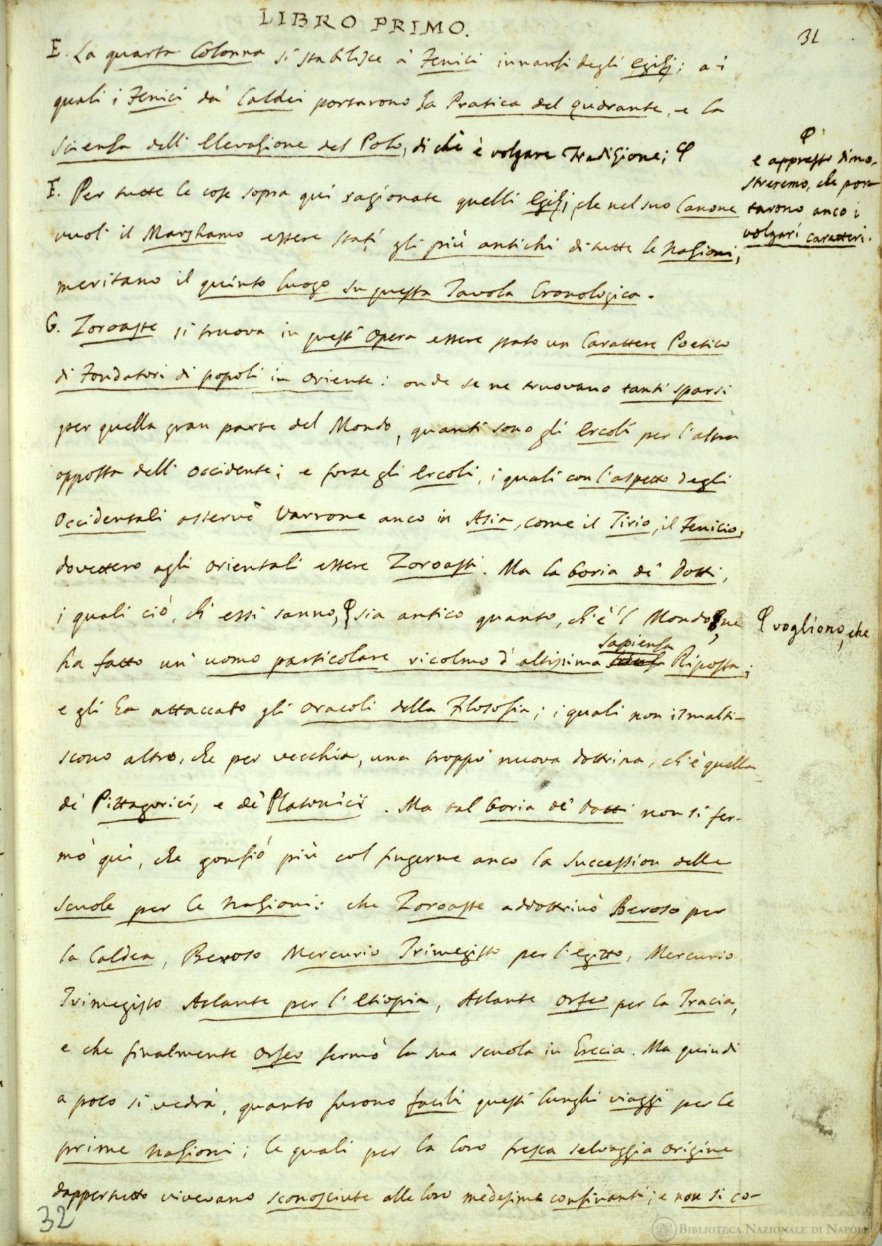 LIBRO PRIMO.
31
E. La quarta Colonna si stabilisce a' Fenici innanzi degli Egizj; a i
quali i Fenici da' Caldei portarono la Pratica del Quadrante, e la
Scienza dell' Elevazione del Polo, di chè è volgare Tradizione; φ
φ
e appresso dimo-
streremo, che por-
tarono anco i
volgari caratteri.
F. Per tutte le cose sopra qui ragionate quelli Egizj, che nel suo Canone
vuol il Marshamo essere stati gli più antichi di tutte le Nazioni,
meritano il quinto luogo su questa Tavola Cronologica.
G. Zoroaste si truova in quest' Opera essere stato un Carattere Poetico
di Fondatori di popoli in Oriente: onde se ne truovano tanti sparsi
per quella gran parte del Mondo, quanti sono gli Ercoli per l'altra
opposta dell' Occidente; e forse gli Ercoli, i quali con l'aspetto degli
Occidentali osservò Varrone anco in Asia, come il Tirio, il Fenicio,
dovettero agli Orientali essere Zoroasti. Ma la boria de' Dotti,
i quali ciò, ch' essi sanno, φ sia antico quanto, ch'è 'l Mondo, ne
φ vogliono, che
ha fatto un' uomo particolare ricolmo d'altissima Sapienza Riposta;
e gli ha attaccato gli oracoli della Filosofia; i quali non ismalti-
scono altro, che per vecchia, una troppo nuova dottrina, ch'è quella
de' Pittagorici, e de' Platonici. Ma tal boria de' Dotti non si fer-
mò qui, che gonfiò più col fingerne anco la Succession delle
scuole per le Nazioni: che Zoroaste addottrinò Beroso per
la Caldea, Beroso Mercurio Trimegisto per l'Egitto, Mercurio
Trimegisto Atlante per l'Etiopia, Atlante Orfeo per la Tracia,
e che finalmente Orfeo fermò la sua scuola in Grecia. Ma quindi
a poco si vedrà, quanto furono facili questi lunghi viaggi per le
prime Nazioni; le quali per la loro fresca selvaggia origine
dappertutto vivevano sconosciute alle loro medesime confinanti; e non si co-
32
BIBLIOTECA NAZIONALE DI NAPOLI